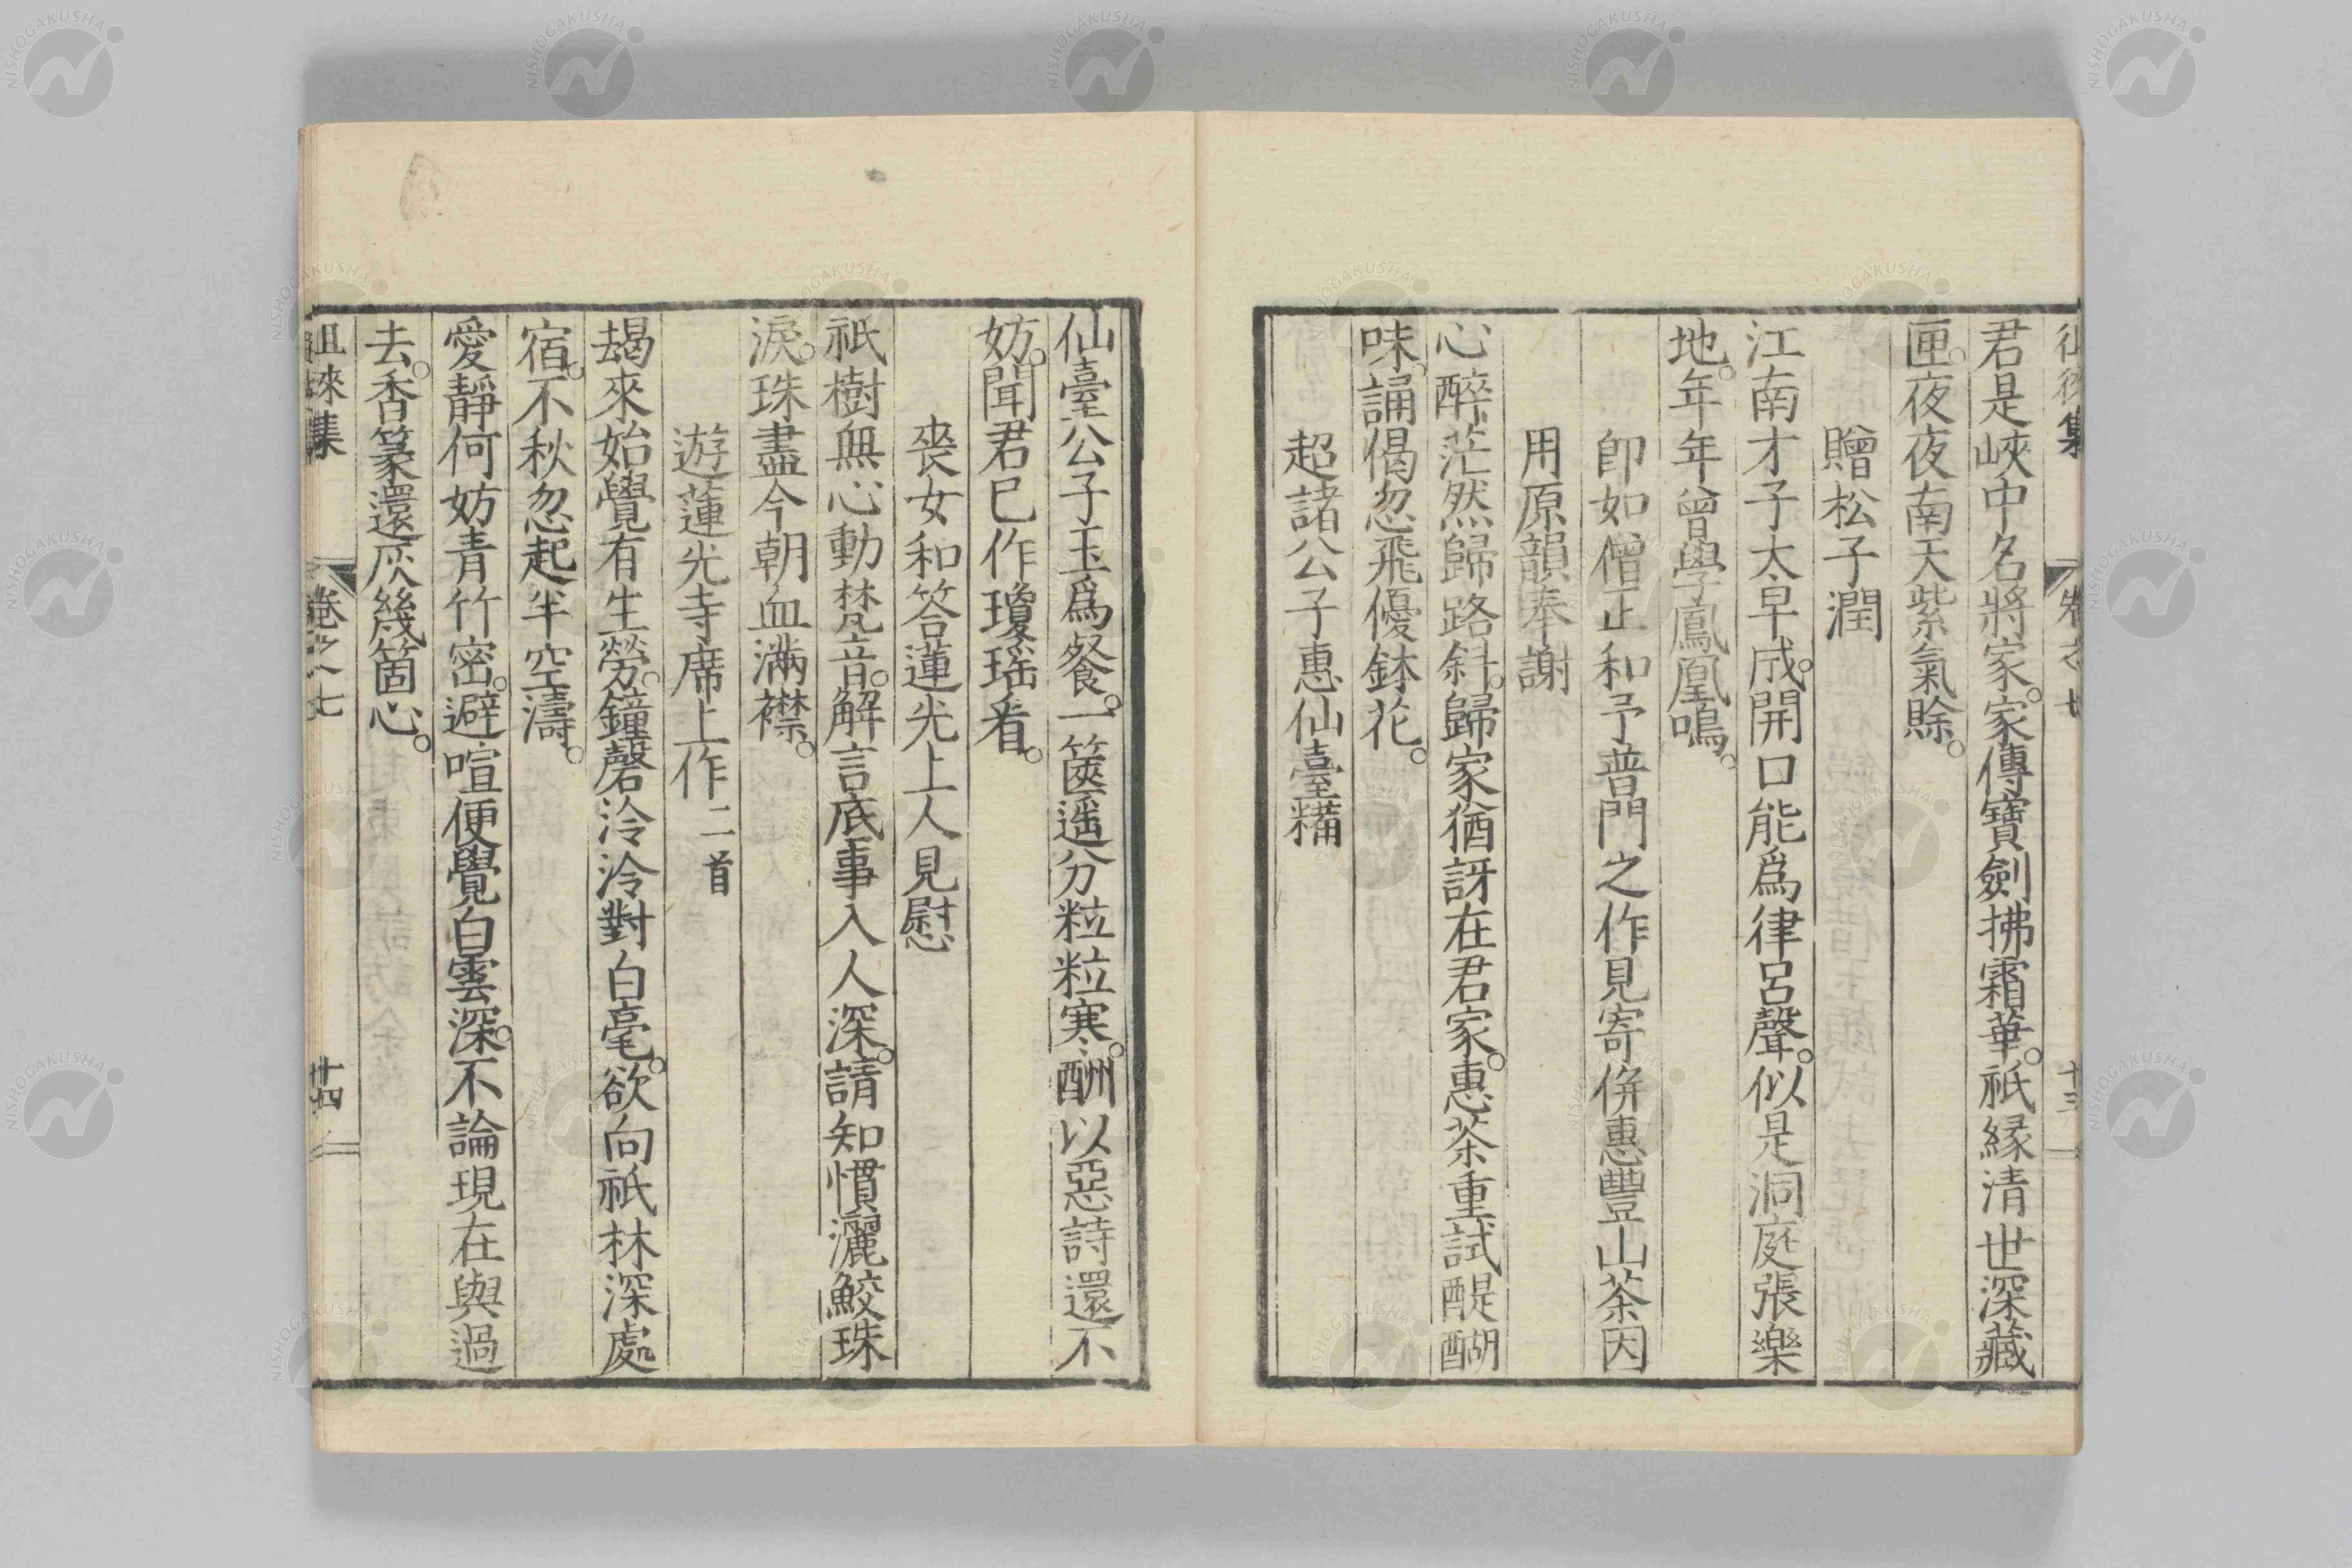 徂徠集 卷之七 十三
君是峽中名將家。家傳寶劍拂霜華。祇緣清世深藏
匣。夜夜南天紫氣賒。
贈松子潤
江南才子太早成。開口能爲律呂聲。似是洞庭張樂
地。年年曾學鳳凰鳴。
卽如僧正和予普門之作見寄倂惠豐山茶因
用原韻奉謝
心醉茫然歸路斜。歸家猶訝在君家。惠茶重試醍醐
味。誦偈忽飛優鉢花。
超諸公子惠仙臺糒
仙臺公子玉爲餐。一篋遥分粒粒寒。酬以惡詩還不
妨。聞君已作瓊瑤看。
喪女和答蓮光上人見慰
祇樹無心動梵音。解言底事入人深。請知慣灑鮫珠
淚。珠盡今朝血滿襟。
遊蓮光寺席上作二首
朅來始覺有生勞。鐘磬泠泠對白毫。欲向祇林深處
宿。不秋忽起半空濤。
愛靜何妨青竹密。避喧便覺白雲深。不論現在與過
去。香篆還灰幾箇心。
徂徠集 卷之七 十四
NISHOGAKUSHA